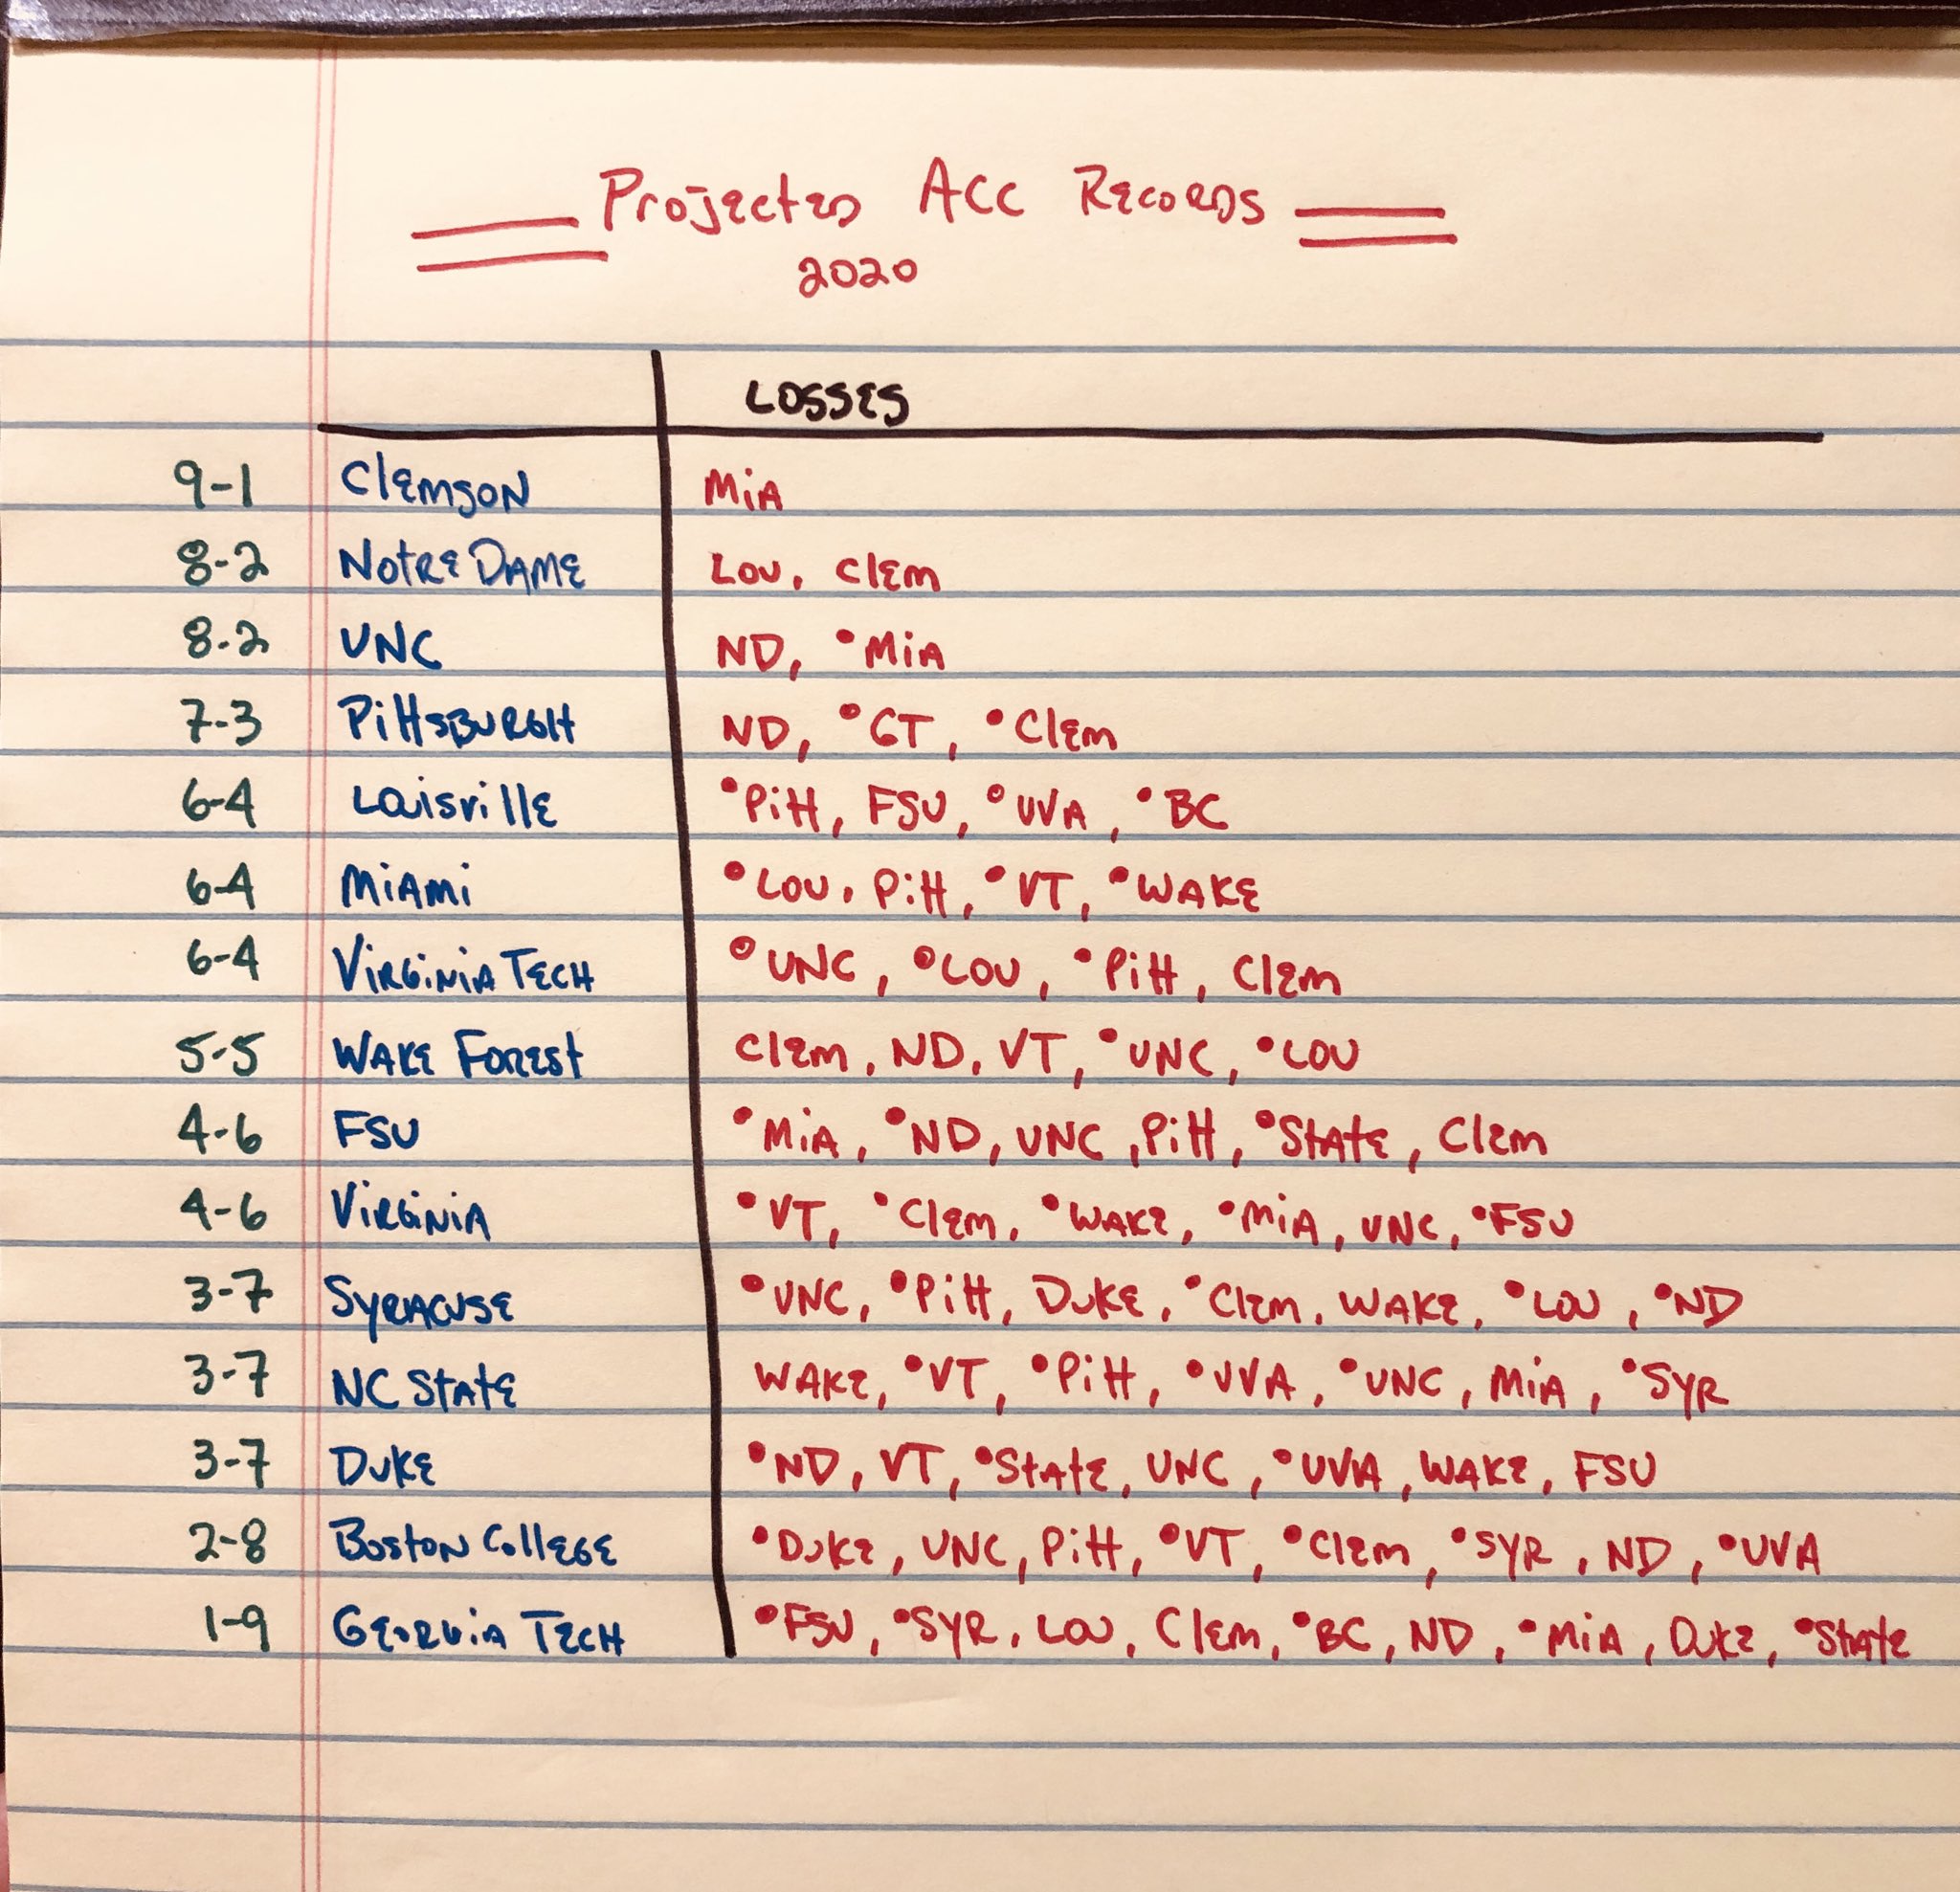 Projected ACC Records
2020
Losses
9-1 Clemson Mia
8-2 Notre Dame Lou, Clem
8-2 UNC ND, •Mia
7-3 Pittsburgh ND, •GT, •Clem
6-4 Louisville •Pitt, FSU, •UVA, •BC
6-4 Miami •Lou, Pitt, •VT, •Wake
6-4 Virginia Tech •UNC, •Lou, •Pitt, Clem
5-5 Wake Forest Clem, ND, VT, •UNC, •Lou
4-6 FSU •Mia, •ND, UNC, Pitt, •State, Clem
4-6 Virginia •VT, •Clem, •Wake, •Mia, UNC, •FSU
3-7 Syracuse •UNC, •Pitt, Duke, •Clem, Wake, •Lou, •ND
3-7 NC State Wake, •VT, •Pitt, •UVA, •UNC, Mia, •Syr
3-7 Duke •ND, VT, •State, UNC, •UVA, Wake, FSU
2-8 Boston College •Duke, UNC, Pitt, •VT, •Clem, •Syr, ND, •UVA
1-9 Georgia Tech •FSU, •Syr, Lou, Clem, •BC, ND, •Mia, Duke, •State